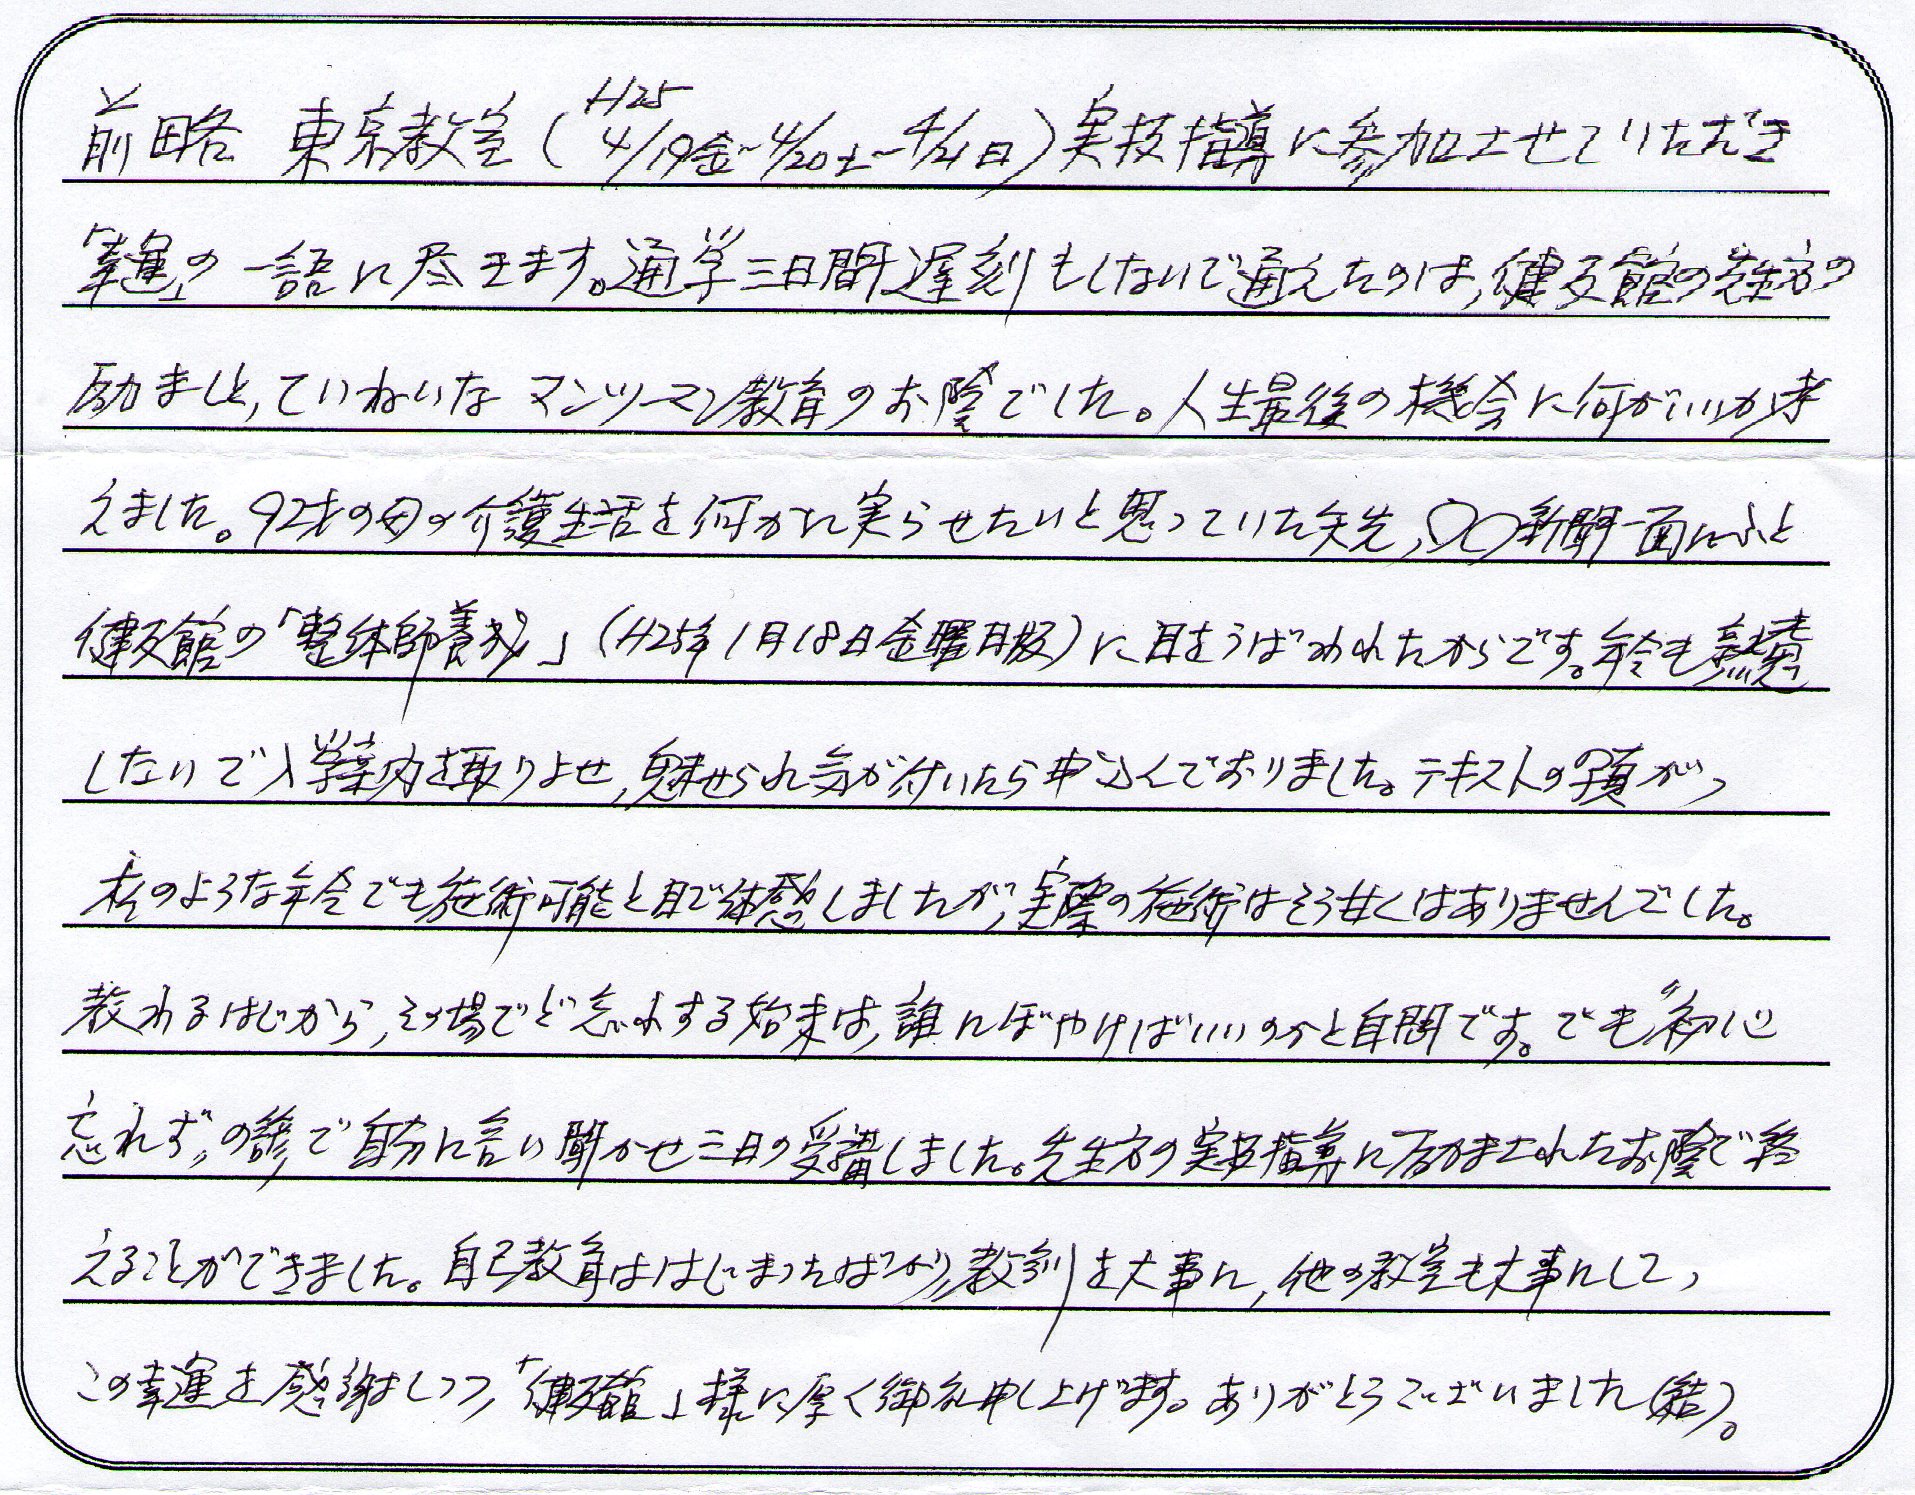 前略 東京教室(H25 4/19金~4/20土~4/21日)実技指導に参加させていただき
「幸運」の一語に尽きます。通学三日間遅刻もしないで通えたのは、健友館の先生方の
励ましと、ていねいなマンツーマン教育のお陰でした。人生最後の機会に何がいいか考
えました。92才の母の介護生活を何かに実らせたいと思っていた矢先、〇〇新聞一面にふと
健友館の「整体師養成」(H25年1月18日金曜日版)に目をうばわれたからです。年令も
しないで入学案内を取りよせ、魅せられ気が付いたら申込んでおりました。テキストの頃が、
私のような年令でも施術可能と目で体感しましたが、実際の施術はそう甘くはありませんでした。
教わるはじから、その場でど忘れする始末は、誰にぼやけばいいのかと自問です。でも"初心
忘れず"の諺で自分に言い聞かせ三日の受講しました。先生方の実技指導に励まされたお陰で終
えることができました。自己教育ははじまったばかり、教訓を大事に、他の教室も大事にして、
この幸運を感謝しつつ、「健友館」様に厚く御礼申し上げます。ありがとうございました(結)。